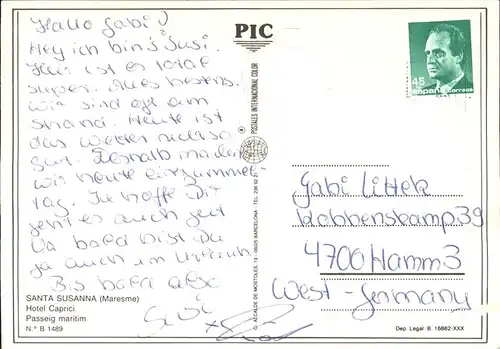 Hallo Gabi!
Hey ich bin's Susi.
Hier ist es total
super. Alles bestens.
Wir sind oft am
Strand. Heute ist
das Wetter nicht so
gut. Deshalb machen
wir heute ein
tag. Ich hoffe Dir
geht es auch gut
Na bald bist Du
ja auch im Urlaub.
Bis bald also
Susi
SANTA SUSANNA (Maresme)
Hotel Caprici
Passeig marítim
N.º B 1489
PIC
POSTALES INTERNACIONAL COLOR
C. ALCALDE DE MOSTOLES, 19 - 08025 BARCELONA - TEL. 236 92 21
45
España Correos
Gabi Littek
Kobbenskamp 39
4700 Hamm 3
West-Germany
Dep. Legal: B. 16862-XXX